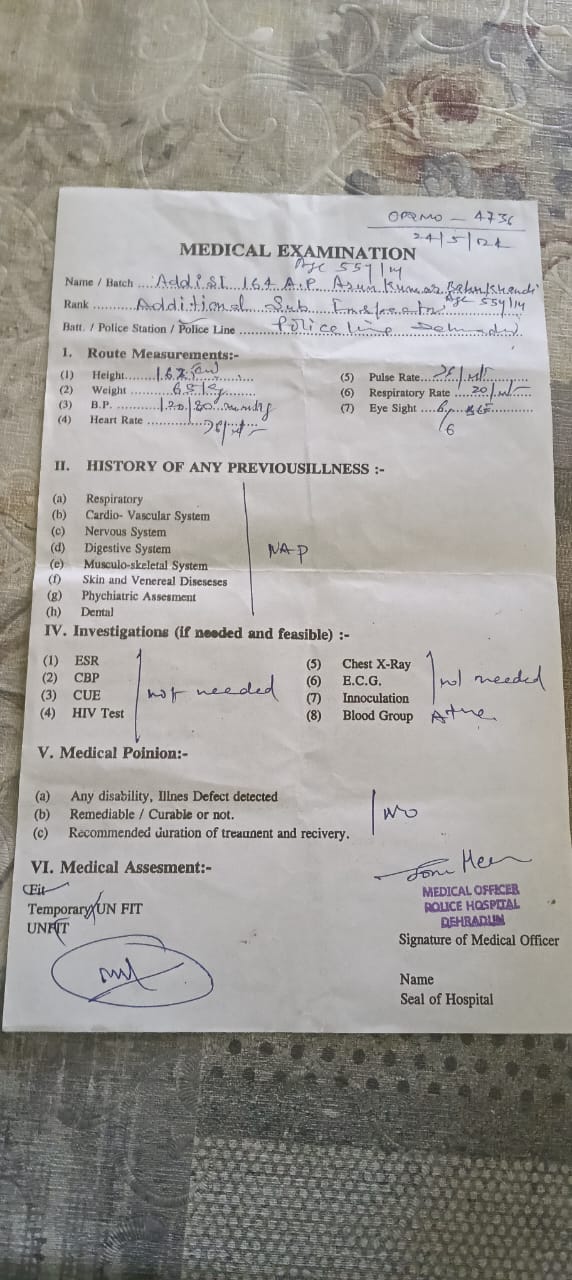 OPDNO - 4736
24/5/24
MEDICAL EXAMINATION
Age 55y/M
Name / Batch .... Add SI 164 A.P Arun Kumar
Rank .......... Additional Sub Inspector Age 55y/M
Batt. / Police Station / Police Line ....... Police line
1. Route Measurements:-
(1) Height
(5) Pulse Rate
(2) Weight
(6) Respiratory Rate ..... 20/
(3) B.P. ......... 120/80 mmHg
(7) Eye Sight .... 6/6
(4) Heart Rate
II. HISTORY OF ANY PREVIOUSILLNESS :-
(a) Respiratory
(b) Cardio- Vascular System
(c) Nervous System
(d) Digestive System
NAP
(e) Musculo-skeletal System
(f) Skin and Venereal Diseseses
(g) Phychiatric Assesment
(h) Dental
IV. Investigations (if needed and feasible) :-
(1) ESR
(2) CBP
(3) CUE
(4) HIV Test
not needed
(5) Chest X-Ray
(6) E.C.G.
(7) Innoculation
not needed
(8) Blood Group A+ve
V. Medical Poinion:-
(a) Any disability, Illnes Defect detected
(b) Remediable / Curable or not.
(c) Recommended duration of treaunent and recivery.
NO
VI. Medical Assesment:-
Fit
Temporary/UN FIT
UNFIT
MEDICAL OFFICER
POLICE HOSPITAL
DEHRADUN
Signature of Medical Officer
Name
Seal of Hospital